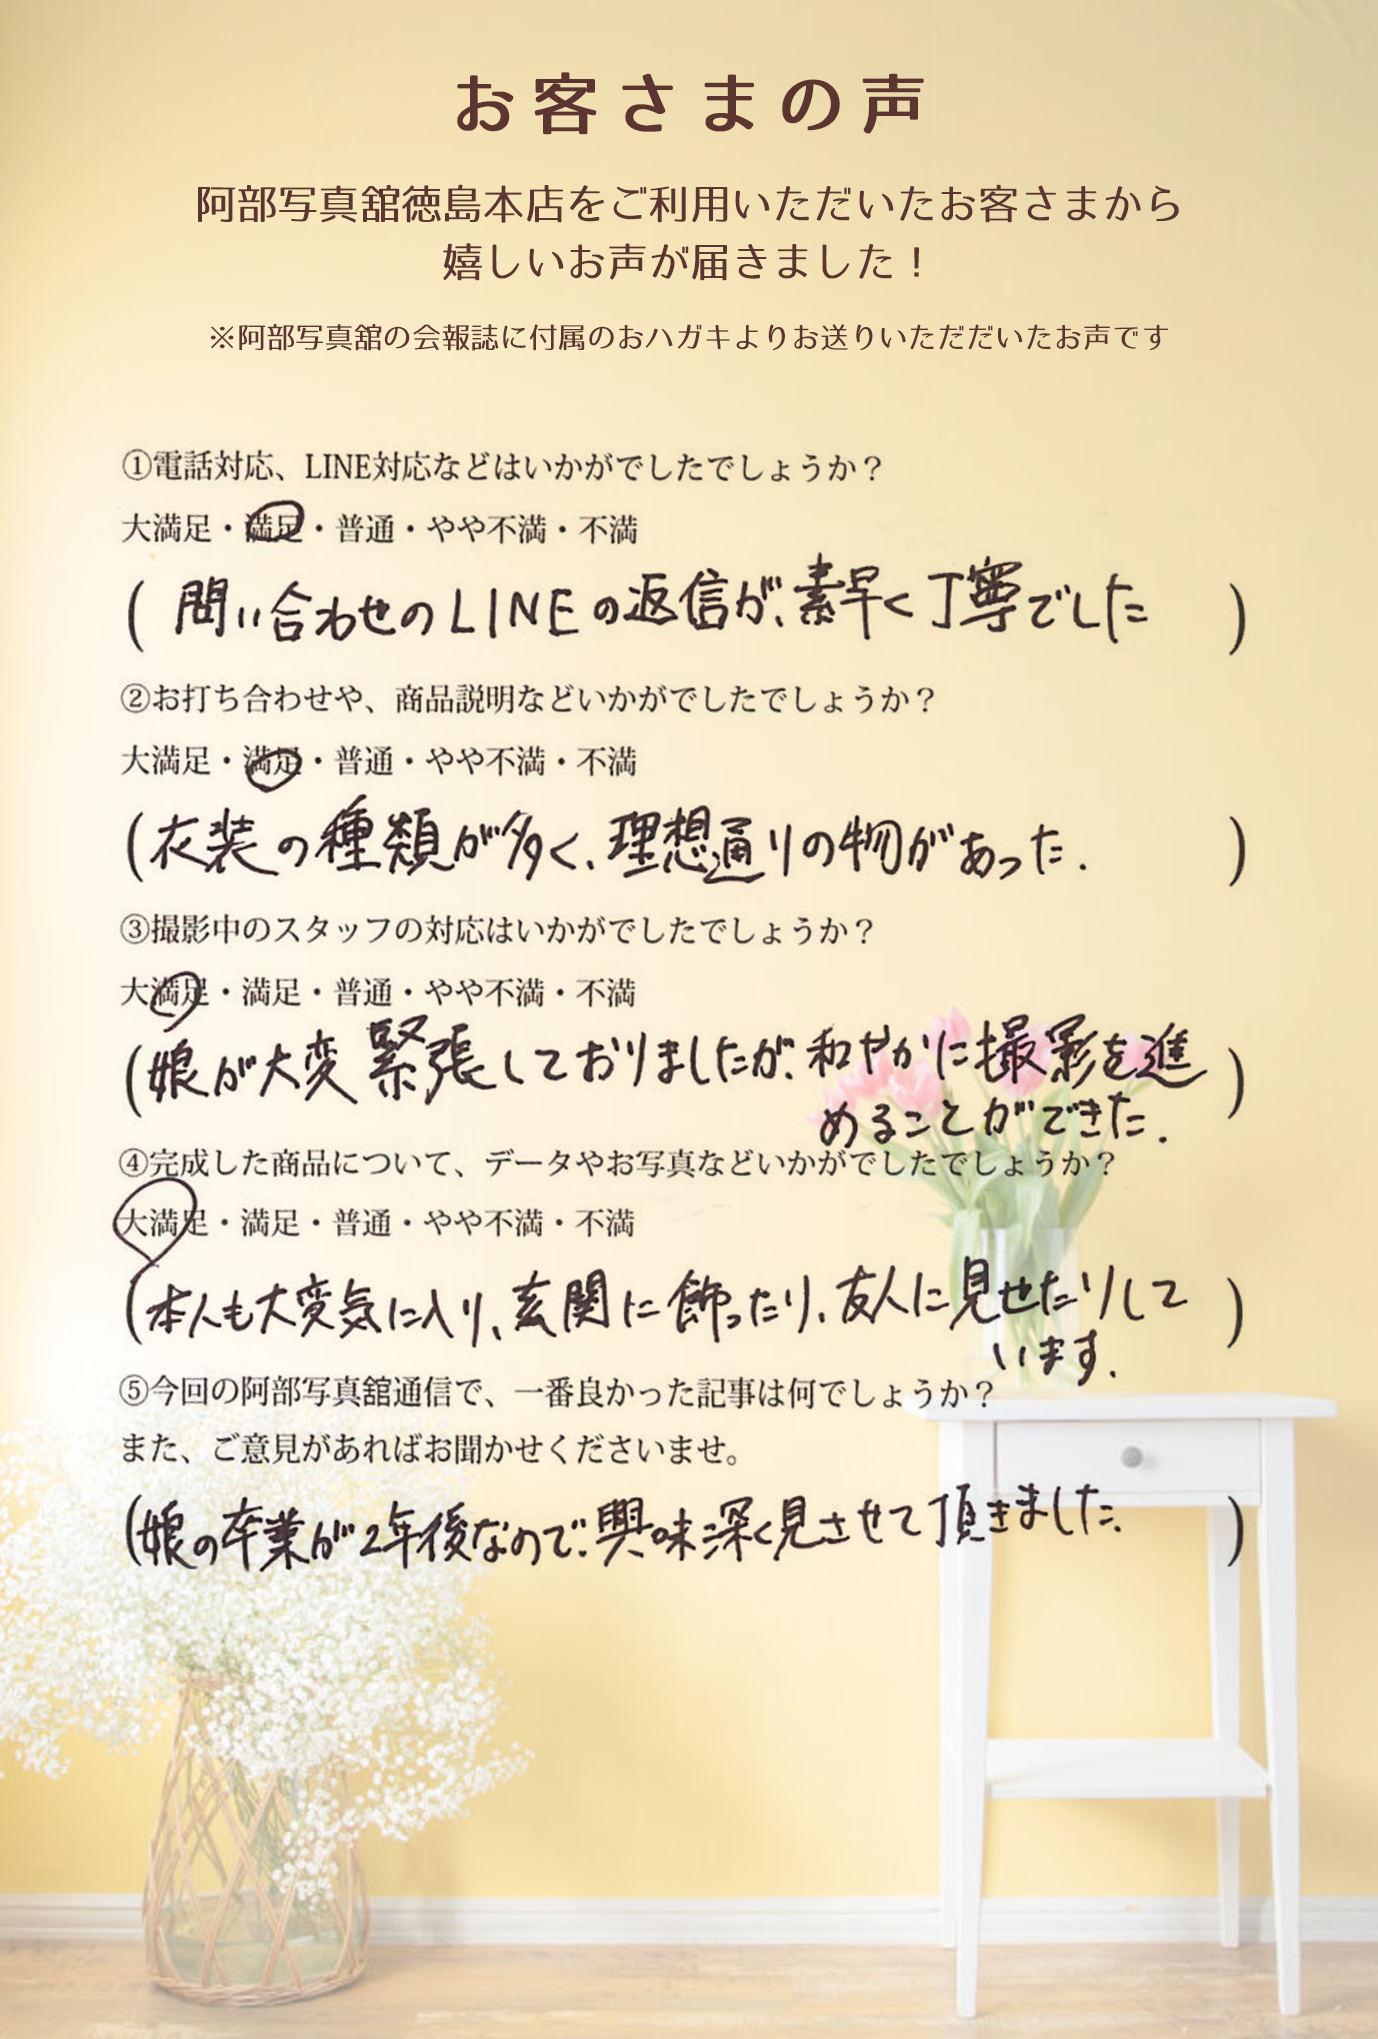 お客さまの声
阿部写真舘徳島本店をご利用いただいたお客さまから
嬉しいお声が届きました！
※阿部写真舘の会報誌に付属のおハガキよりお送りいただだいたお声です
①電話対応、LINE対応などはいかがでしたでしょうか？
大満足・満足・普通・やや不満・不満
(問い合わせのLINEの返信が、素早く丁寧でした)
②お打ち合わせや、商品説明などいかがでしたでしょうか？
大満足・満足・普通・やや不満・不満
(衣装の種類が多く、理想通りの物があった.)
③撮影中のスタッフの対応はいかがでしたでしょうか？
大満足・満足・普通・やや不満・不満
(娘が大変緊張しておりましたが、和やかに撮影を進)
めることができた.
④完成した商品について、データやお写真などいかがでしたでしょうか？
大満足・満足・普通・やや不満・不満
(本人も大変気に入り、玄関に飾ったり、友人に見せたりして)
います.
⑤今回の阿部写真舘通信で、一番良かった記事は何でしょうか？
また、ご意見があればお聞かせくださいませ。
(娘の卒業が2年後なので、興味深く見させて頂きました.)